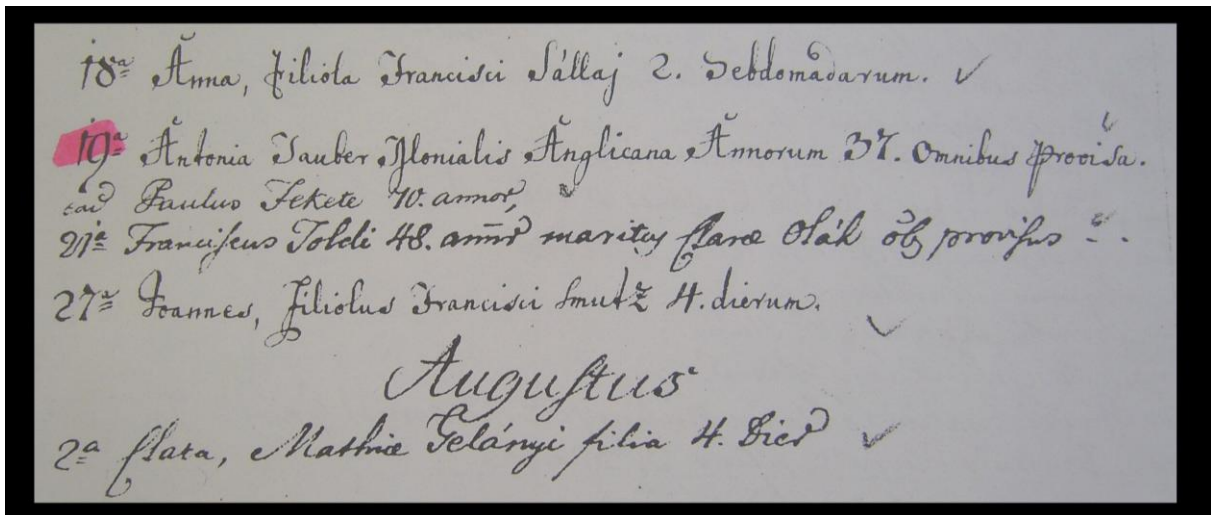 18ª Anna, Filiola Francisci Sállaj 2. Hebdomadarum.
19ª Antonia Tauber Monialis Anglicana Annorum 37. Omnibus Provisa.
ead Paulus Fekete 70. annor,
21ª Franciscus Toldi 48. annr maritus Claræ Oláh õb provisus
27ª Joannes, Filiolus Francisci Smutz 4. dierum.
Augustus
2ª Clara, Mathiæ Gelányi filia 4. Dier